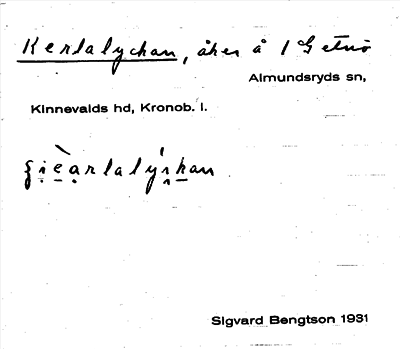 Kerlalyckan, åker å 1 G etnö
Almundsryds sn,
Kinnevalds hd, Kronob. l.
Sigvard Bengtson 1931